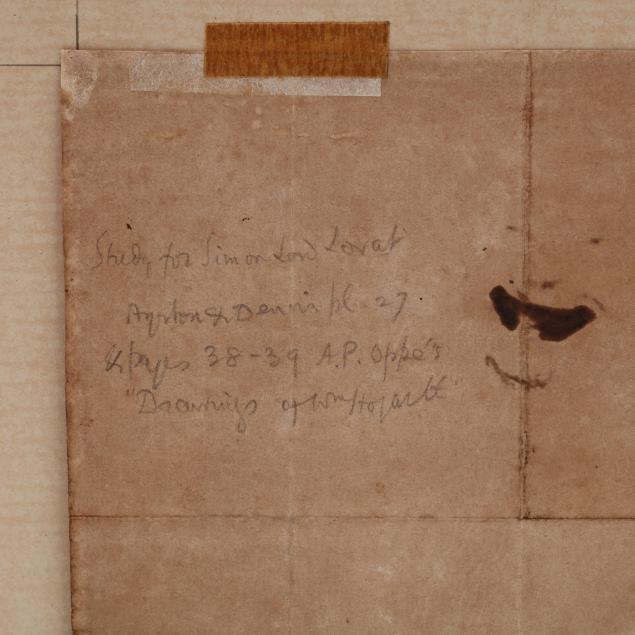 Study for Simon Lord Lovat
Ayrton & Dennis pl. 27
& pages 38-39 A.P. Oppé's
"Drawings of Wm Hogarth"